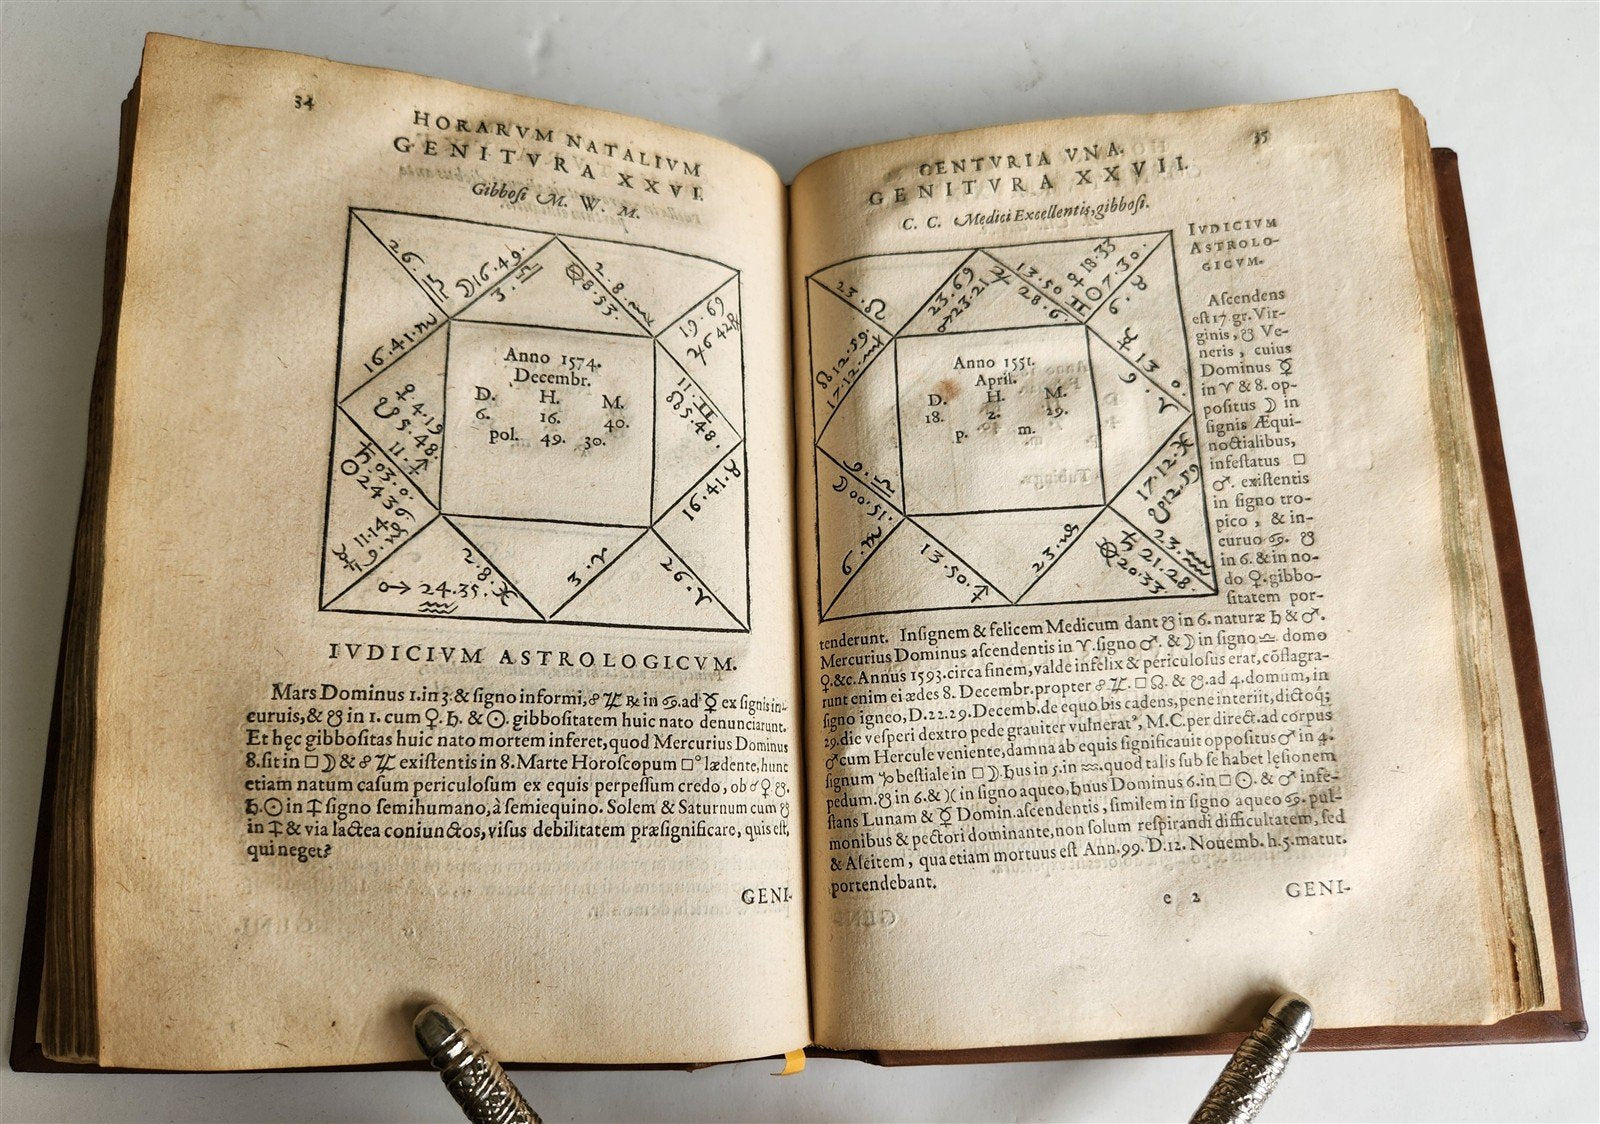 34
HORARVM NATALIVM
GENITVRA XXVI.
Gibbosi M. W. M.
26. ♎
☽ 16.49.
3. ♎
⊗ 8.53.
2.8. ♏
19.69
♃ 6 42 ℞
16.41. ♏
♀ 4.19
☋ 5.48.
11. ♐
Anno 1574.
Decembr.
D. H. M.
6. 16. 40.
pol. 49. 30.
11. ♊
☊ 5.48.
♄ 03.0.
☉ 24 36
11.14.
9. ♑
16.41. ♉
♂ 24.35.
♒
2.8. ♓
3. ♈
26. ♈
IVDICIVM ASTROLOGICVM.
Mars Dominus 1. in 3. & signo informi, ☍ ♃ ℞ in ♋. ad ☿ ex signis in-
curuis, & ☋ in 1. cum ♀. ♄. & ☉. gibbositatem huic nato denunciarunt.
Et hęc gibbositas huic nato mortem inferet, quod Mercurius Dominus
8. sit in □ ☽ & ☍ ♃ existentis in 8. Marte Horoscopum □° lædente, hunc
etiam natum casum periculosum ex equis perpessum credo, ob ☌ ♀ ☋.
♄. ☉ in ♐ signo semihumano, à semiequino. Solem & Saturnum cum ☋
in ♐ & via lactea coniunctos, visus debilitatem præsignificare, quis est,
qui neget?
GENI-
35
CENTVRIA VNA.
GENITVRA XXVII.
C. C. Medici Excellentis, gibbosi.
23. ♌
23.69
♂ 23.21
♃
13.50 ♊
28.6.
♀ 18.33
☉ 7.30.
6. ♉
☊ 12.59.
17.12. ♍
Anno 1551.
April.
D. H. M.
18. 2. 29.
p. m.
☿ 13 0.
9. ♈
6. ♎
☽ 15.00
6. ♏
13.50. ♐
23. ♑
17.12. ♓
☋ 12.59
23. ♒
♄ 21.28.
⊗ 20.33
IVDICIVM
ASTROLO-
GICVM.
Ascendens
est 17. gr. Vir-
ginis, ☋ Ve-
neris, cuius
Dominus ☿
in ♈ & 8. op-
positus ☽ in
signis Æqui-
noctialibus,
infestatus □
♂. existentis
in signo tro-
pico, & in-
curuo ♋. ☋
in 6. & in no-
do ♀. gibbo-
sitatem por-
tenderunt. Insignem & felicem Medicum dant ☋ in 6. naturæ ♄ & ♂.
Mercurius Dominus ascendentis in ♈. signo ♂. & ☽ in signo ♎ domo
♀. &c. Annus 1593. circa finem, valde infelix & periculosus erat, cõflagra-
runt enim ei ædes 8. Decembr. propter ☍ ♃. □ ☊. & ☋. ad 4. domum, in
signo igneo, D. 22. 29. Decemb. de equo bis cadens, pene interiit, dictoq;
29. die vesperi dextro pede grauiter vulnerat⁹, M. C. per direct. ad corpus
♂ cum Hercule veniente, damna ab equis significauit oppositus ♂ in 4.
signum ♑ bestiale in □ ☽. ♄ us in 5. in ♒. quod talis sub se habet lęsionem
pedum. ☋ in 6. & ♓ in signo aqueo, ♄nus Dominus 6. in □ ☉. & ♂ infe-
stans Lunam & ☿ Domin. ascendentis, similem in signo aqueo ♋. pul-
monibus & pectori dominante, non solum respirandi difficultatem, sed
& Ascitem, qua etiam mortuus est Ann. 99. D. 12. Nouemb. h. 5. matut.
portendebant.
e 2
GENI-